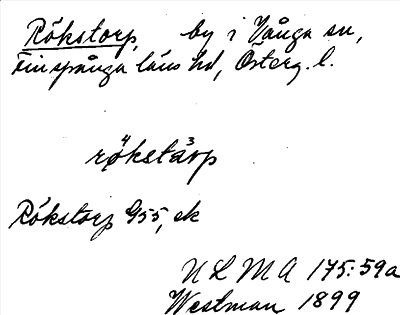 Rökstorp, by i Vånga sn,
Finspånga läns hd, Österg. l.
røkstårp
Rökstorp G55, ek
ULMA 175:59a
Westman 1899